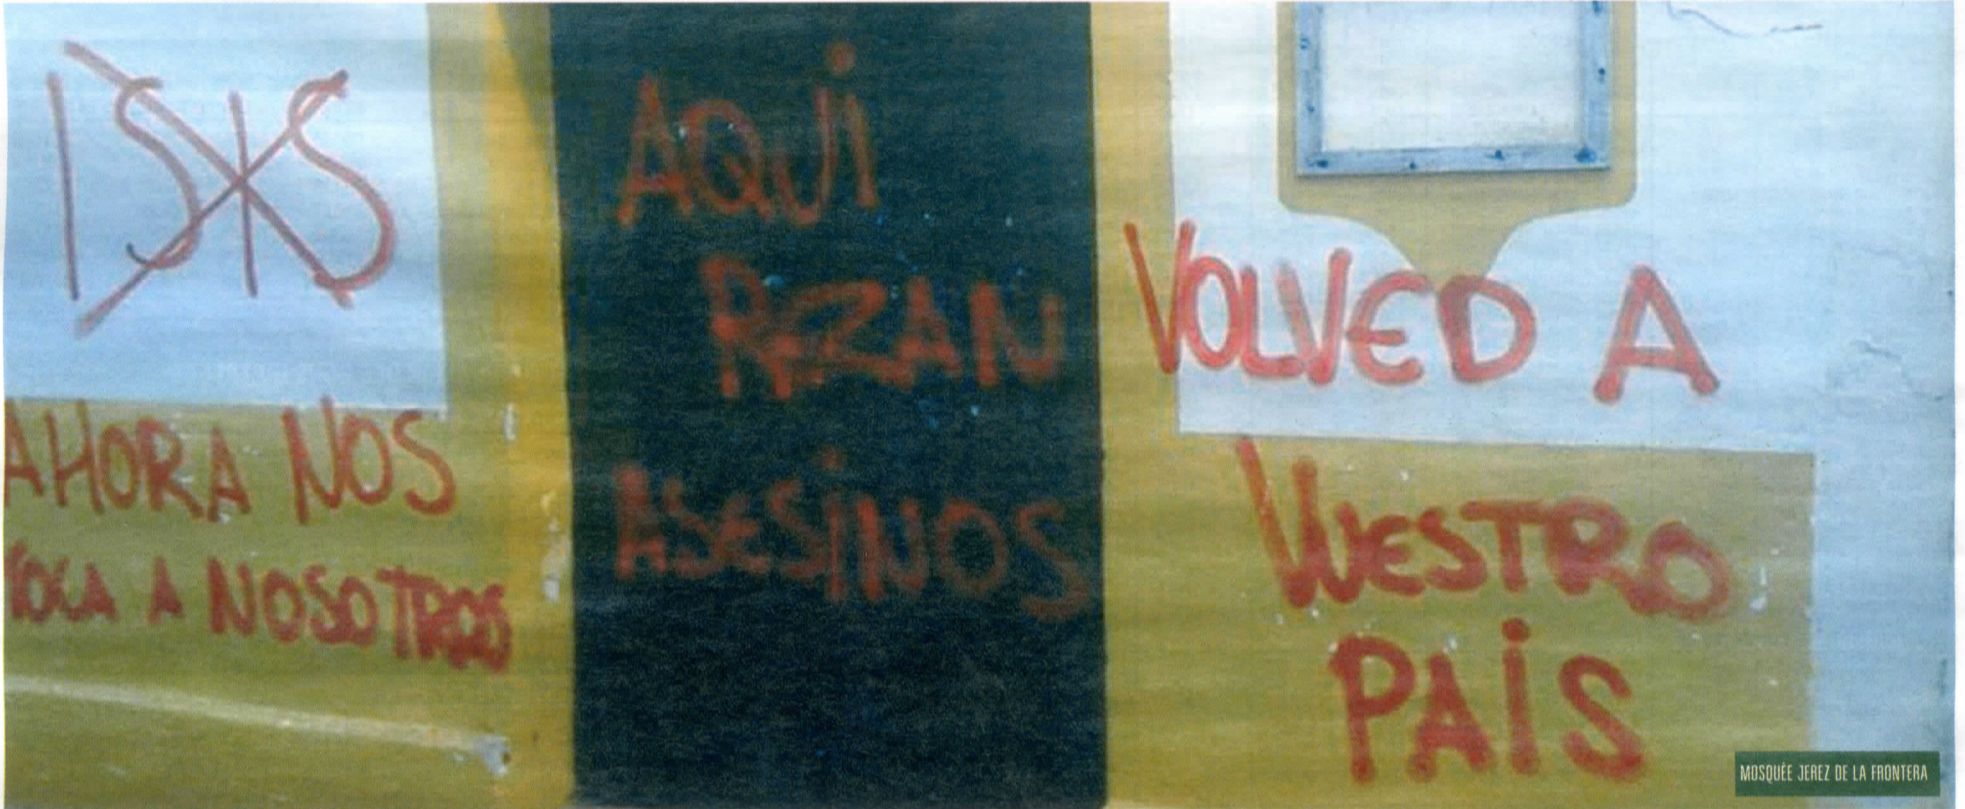 ISIS
AHORA NOS
TOCA A NOSOTROS
AQUİ
REZAN
ASESİNOS
VOLVED A
VUESTRO
PAİS
MOSQUÉE JEREZ DE LA FRONTERA